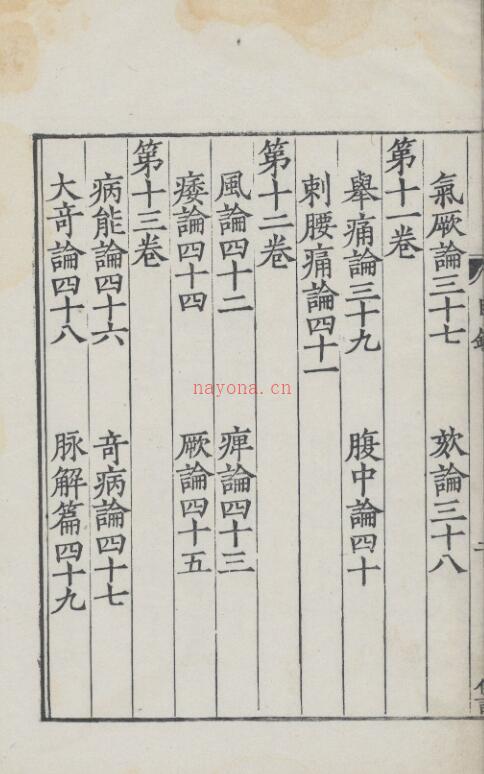 氣厥論三十七 欬論三十八
第十一卷
舉痛論三十九 腹中論四十
刺腰痛論四十一
第十二卷
風論四十二 痺論四十三
痿論四十四 厥論四十五
第十三卷
病能論四十六 奇病論四十七
大奇論四十八 脉解篇四十九
nayona.cn